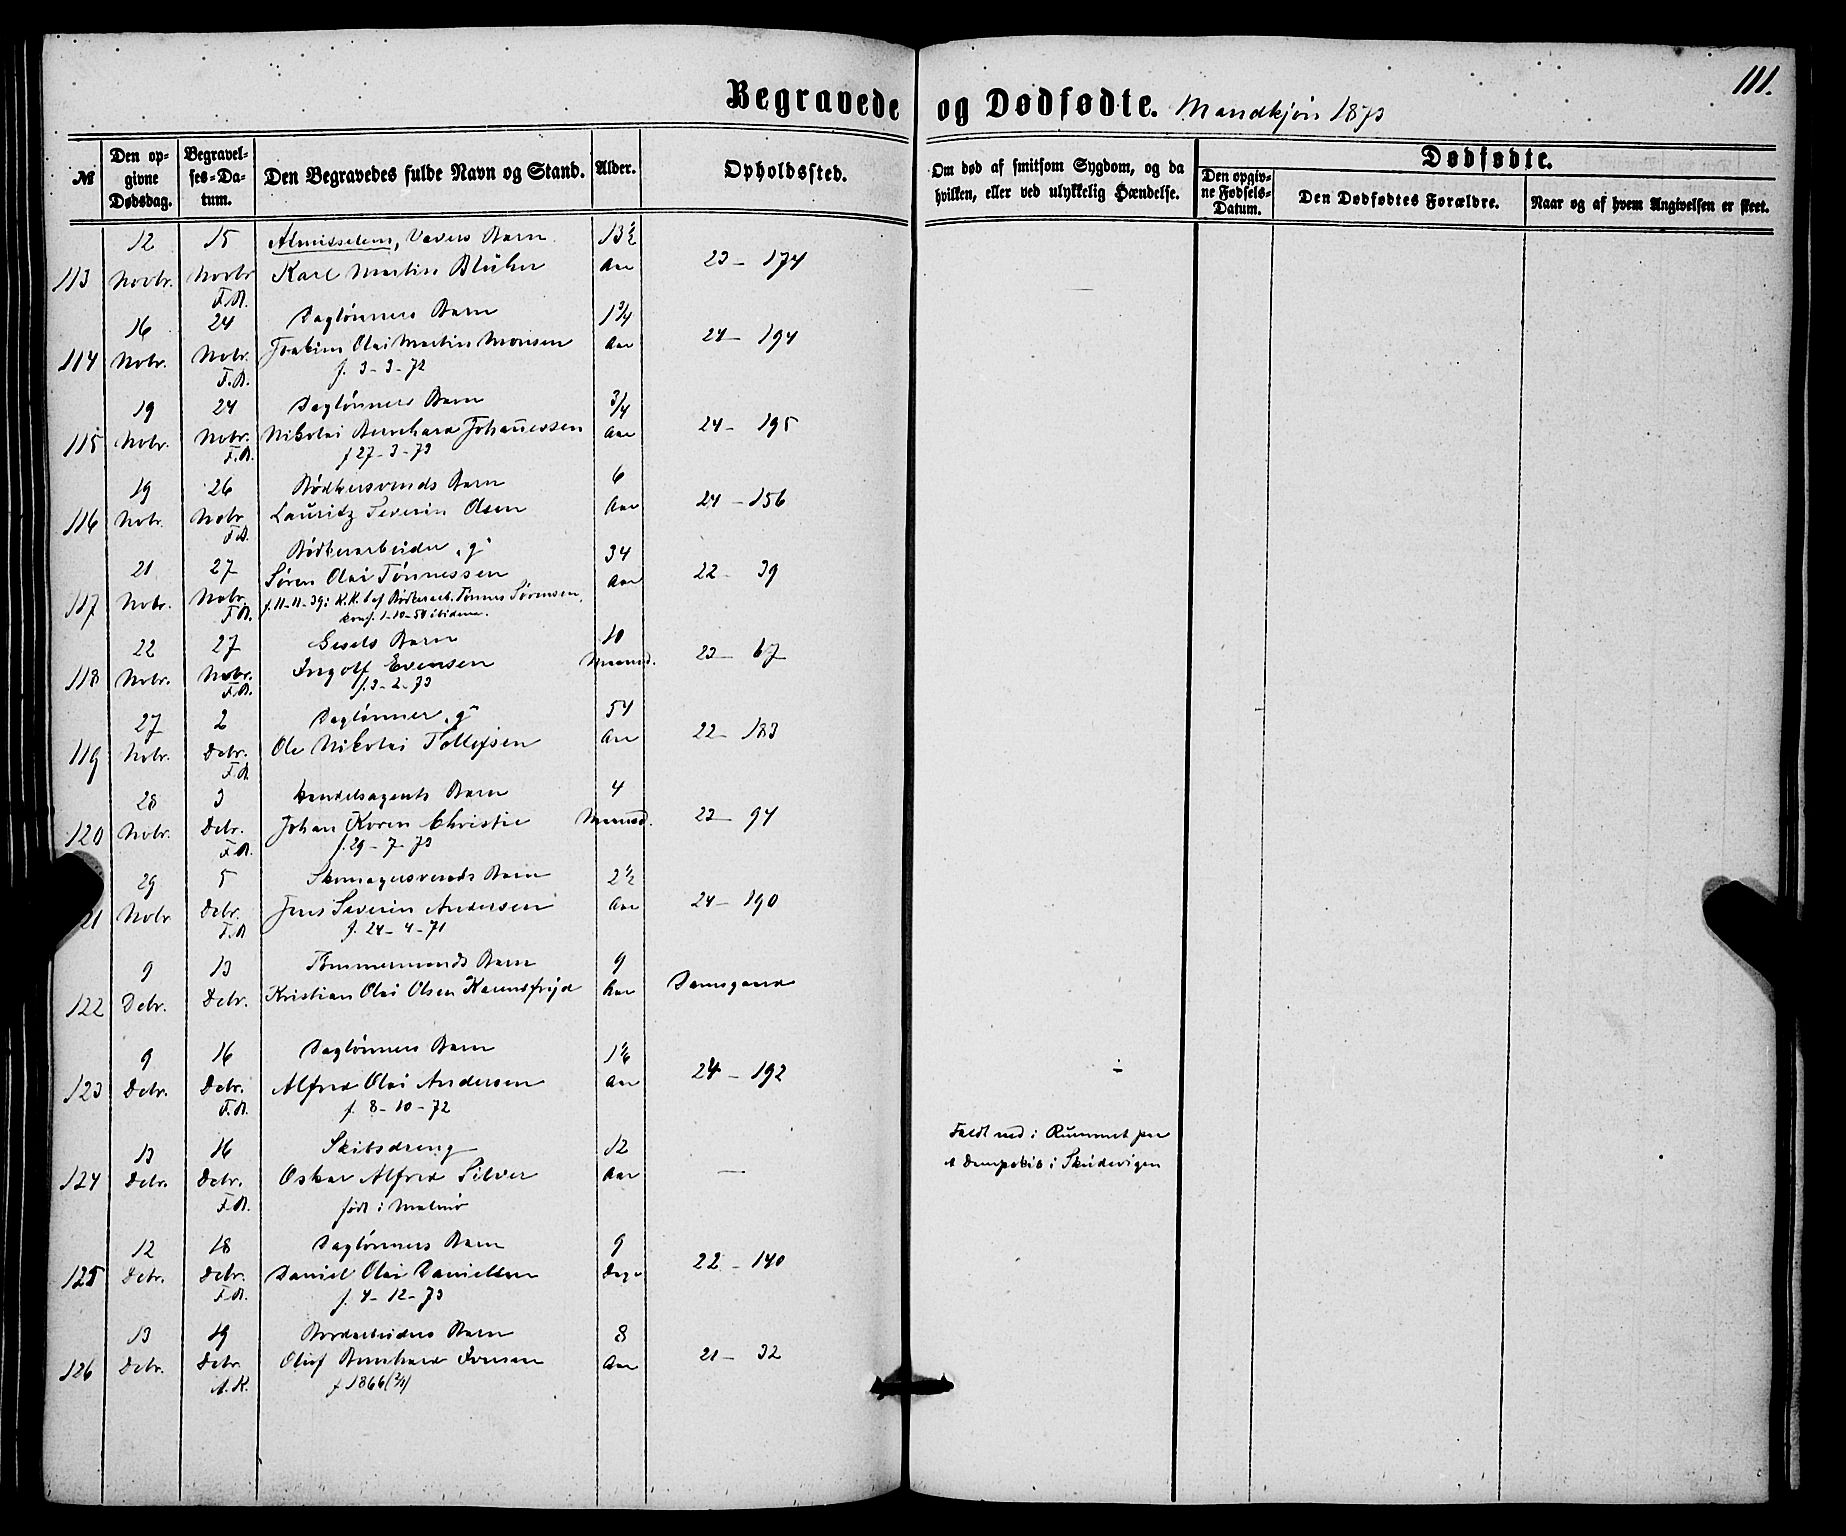 111.
Begravede og Dødfødte. Mandkjøn 1873
№ Den opgivne Dødsdag. Begravelses-Datum. Den Begravedes fulde Navn og Stand. Alder. Opholdssted. Om død af smitsom Sygdom, og da hvilken, eller ved ulykkelig Hændelse. Dødfødte. Den opgivne Fødsels-Datum. Den Dødfødtes Forældre. Naar og af hvem Angivelsen er skeet.
12 15 Almisselem, Vævers Barn 13½
113 Novbr. Novbr. Karl Martin Blücher Aar 23 - 174
F.A.
16 24 Daglønners Barn 1¾
114 Nobr. Nobr. Joakim Olai Martin Monsen Aar 24 - 194
F.A. f. 3-3-72
19 24 Daglønners Barn ¾
115 Nobr. Nobr. Nikolai Bernhard Johannessen Aar 24 - 195
F.A. f 27-3-73
19 26 Bødkersvends Barn 6
116 Nobr. Nobr. Lauritz Severin Olsen Aar 24 - 156
F.A.
21 27 Bødkerarbeider "g" 34
117 Nobr. Nobr. Søren Olai Tønnessen Aar 22 - 39
F.A. f. 11-11-39 i K.K. af Bødkerarb. Tønnes Sørensen,
konf. 1-10-54 ibidem.
22 27 Gesels Barn 10
118 Nobr. Nobr. Ingolf Evensen Maaned. 23 - 67
F.A. f. 3-2-73
27 2 Daglønner "g" 54
119 Nobr. Debr. Ole Nikolai Tollefsen Aar 22 - 183
F.A.
28 3 Handelsagents Barn 4
120 Nobr. Debr. Johan Koren Christie Maaned. 23 - 94
F.A. f. 29-7-73
29 5 Skomagersvends Barn 2½
21 Nobr Debr. Jens Severin Andersen Aar 24 - 190
F.A f. 24-4-71
9 13 Tømmermands Barn 9
122 Debr. Debr. Kristian Olai Olsen Karensfryd Aar Damsgaard
9 16 Daglønners Barn 1 1/6
123 Debr. Debr. Alfred Olai Andersen Aar 24 - 192
F.A. f. 8-10-72
13 16 Skibsdreng 12 Faldt ned i Rummet paa
124 Debr. Debr. Oskar Alfred Silver Aar — et Dampskib i Skudevigen
F.A. født i Malmø
12 18 Daglønners Barn 9
125 Debr. Debr. Daniel Olai Danielsen Dage 22 - 140
F.A. f. 4-12-73
13 19 Bordarbeiders Barn 8
126 Debr. Debr. Oluf Bernhard Iversen Aar 21 - 32
A.K. f 1866